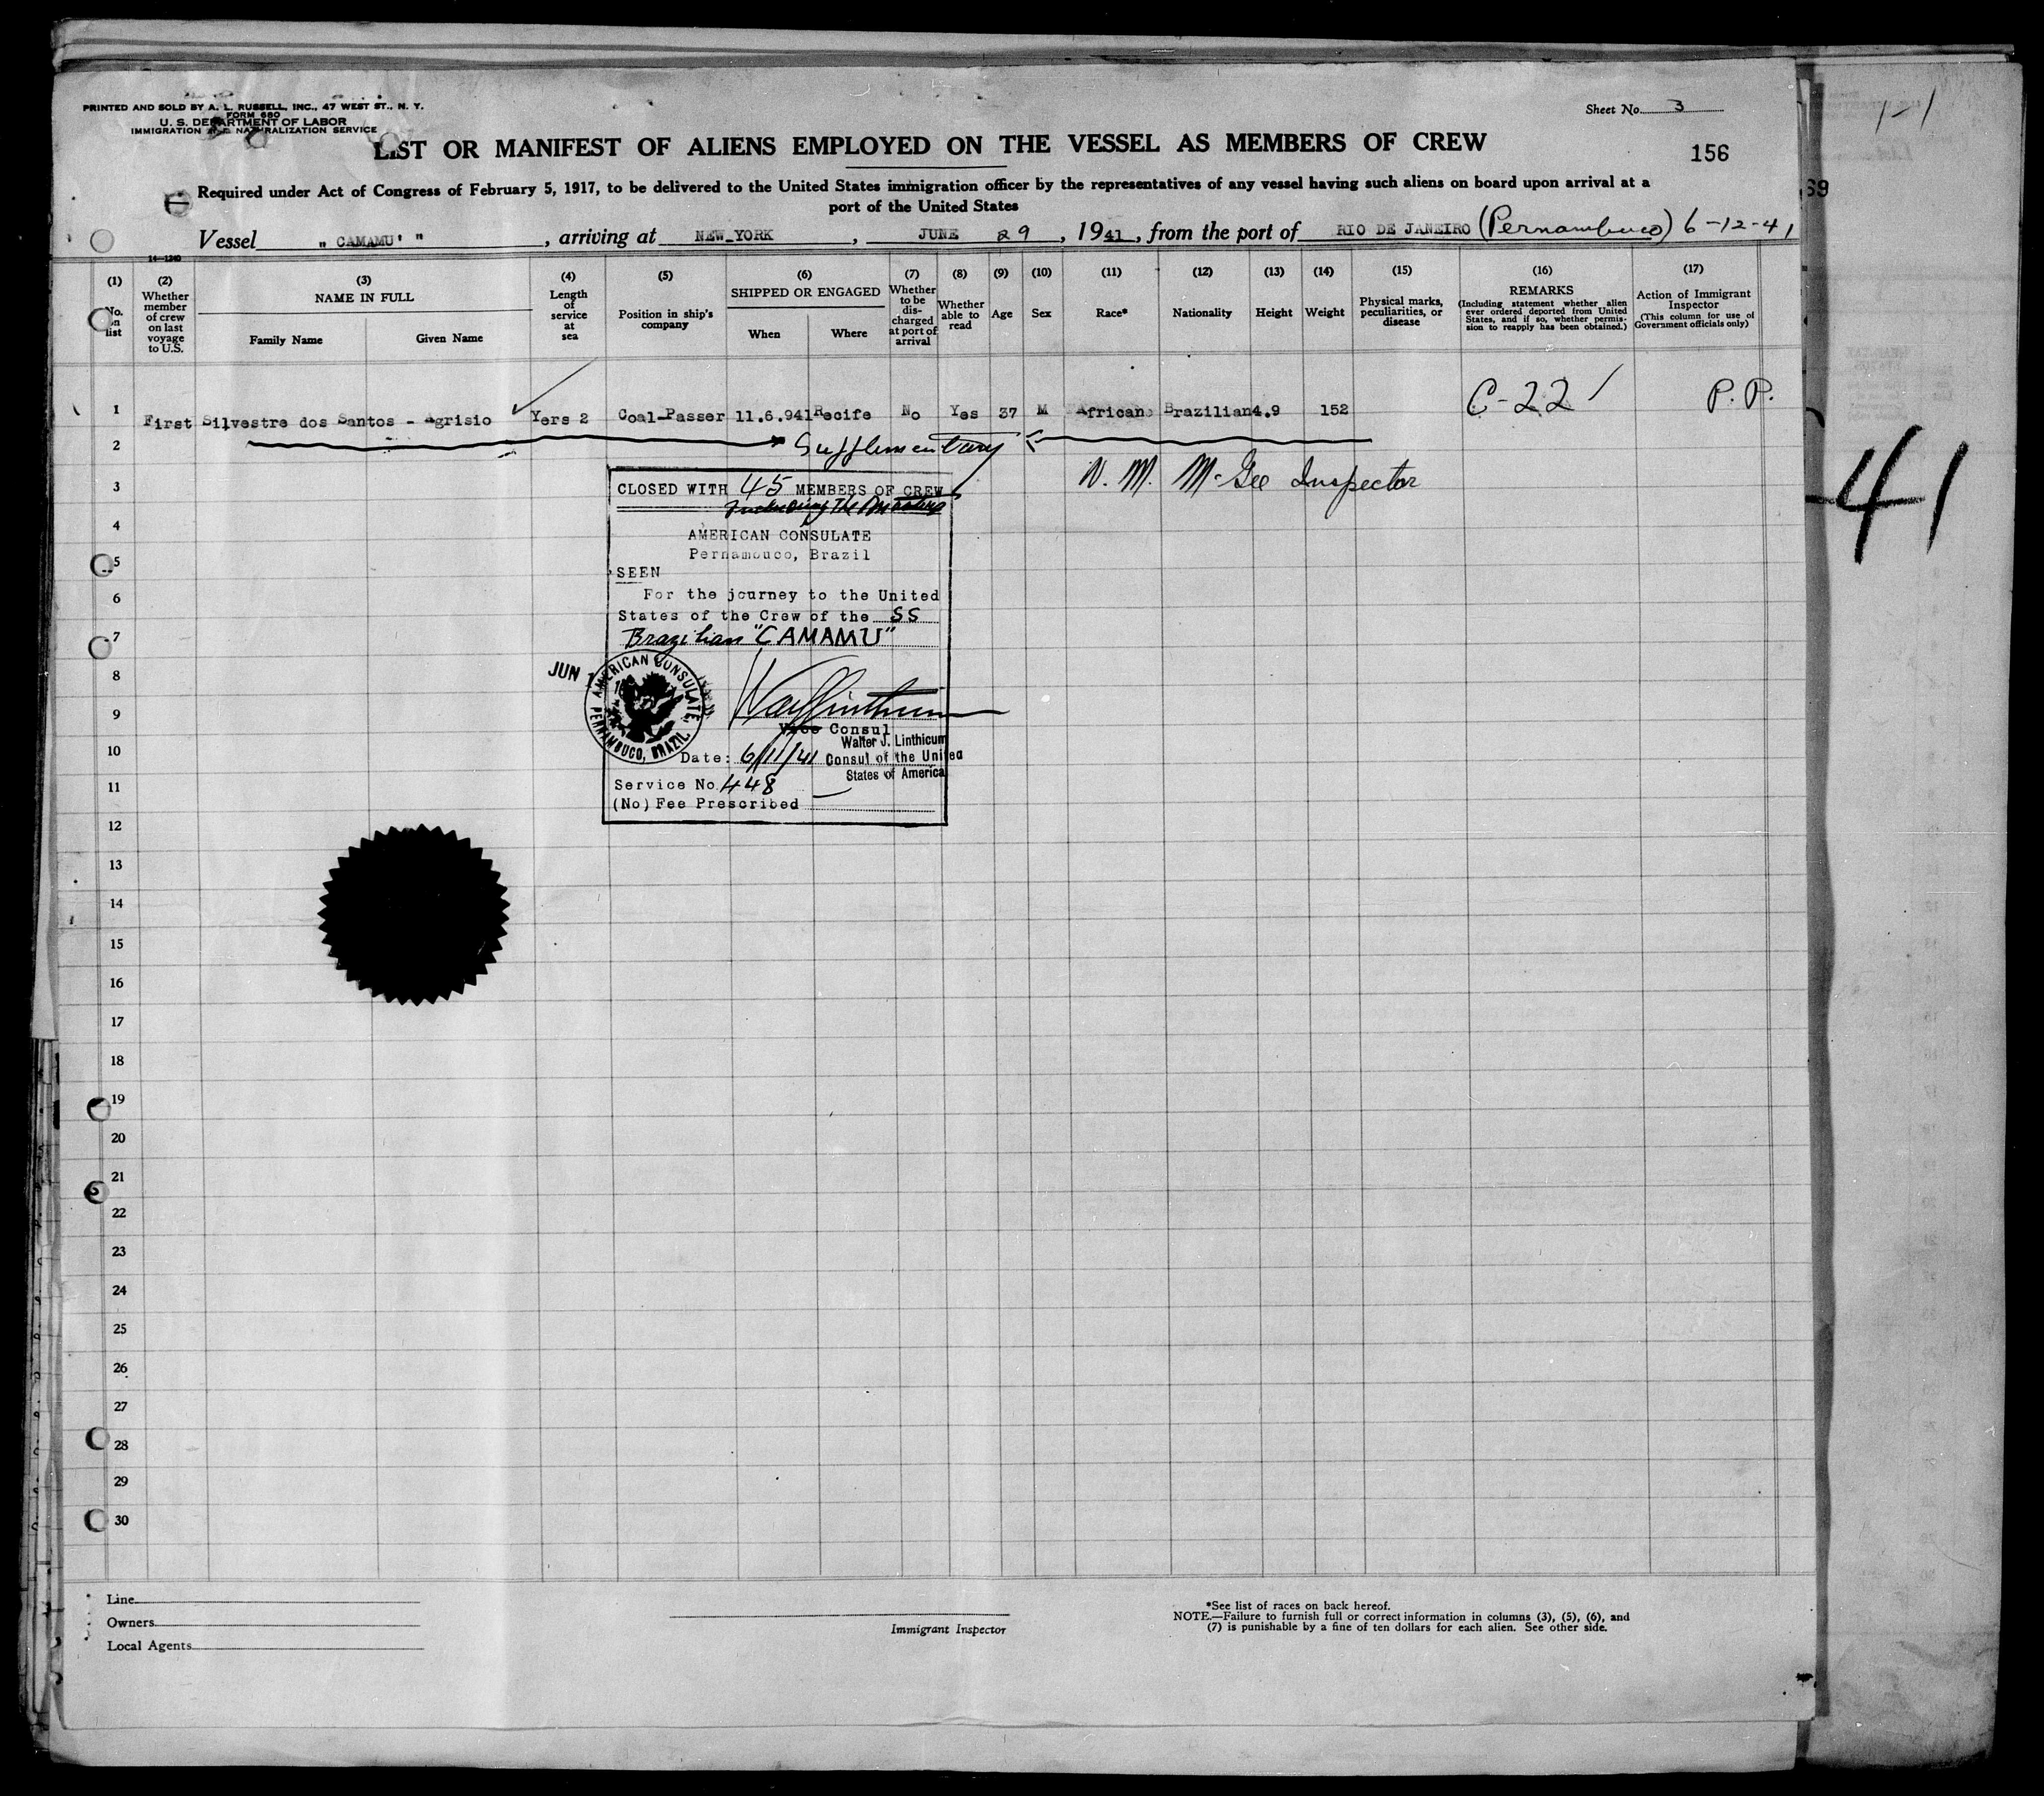 PRINTED AND SOLD BY A. L. RUSSELL, INC., 47 WEST ST., N. Y.
FORM 680
U. S. DEPARTMENT OF LABOR
IMMIGRATION AND NATURALIZATION SERVICE
Sheet No. 3
LIST OR MANIFEST OF ALIENS EMPLOYED ON THE VESSEL AS MEMBERS OF CREW
156
Required under Act of Congress of February 5, 1917, to be delivered to the United States immigration officer by the representatives of any vessel having such aliens on board upon arrival at a
port of the United States
Vessel " CAMAMU' " , arriving at NEW YORK , JUNE 29 , 1941 , from the port of RIO DE JANEIRO (Pernambuco) 6-12-41
14-1240
(1) (2) (3) (4) (5) (6) (7) (8) (9) (10) (11) (12) (13) (14) (15) (16) (17)
No. on list
Whether member of crew on last voyage to U.S.
NAME IN FULL
Family Name Given Name
Length of service at sea
Position in ship's company
SHIPPED OR ENGAGED
When Where
Whether to be discharged at port of arrival
Whether able to read
Age
Sex
Race*
Nationality
Height
Weight
Physical marks, peculiarities, or disease
REMARKS
(Including statement whether alien ever ordered deported from United States, and if so, whether permission to reapply has been obtained.)
Action of Immigrant Inspector
(This column for use of Government officials only)
1 First Silvestre dos Santos - Agrisio Yers 2 Coal-Passer 11.6.941 Recife No Yes 37 M African Brazilian 4.9 152 C-22 P.P.
2 Supplementary
N. M. McGee Inspector
3
CLOSED WITH 45 MEMBERS OF CREW
Including The Master
4
AMERICAN CONSULATE
Pernambuco, Brazil
5
SEEN
For the journey to the United
6
States of the Crew of the SS
7
Brazilian "CAMAMU"
JUN 1
AMERICAN CONSULATE, PERNAMBUCO, BRAZIL.
8
9
Vice Consul
Walter J. Linthicum
10
Date: 6/11/41 Consul of the United
States of America
11
Service No. 448
(No) Fee Prescribed
12
13
14
15
16
17
18
19
20
21
22
23
24
25
26
27
28
29
30
Line
Owners
Local Agents
Immigrant Inspector
*See list of races on back hereof.
NOTE.—Failure to furnish full or correct information in columns (3), (5), (6), and
(7) is punishable by a fine of ten dollars for each alien. See other side.
1-1
69
41